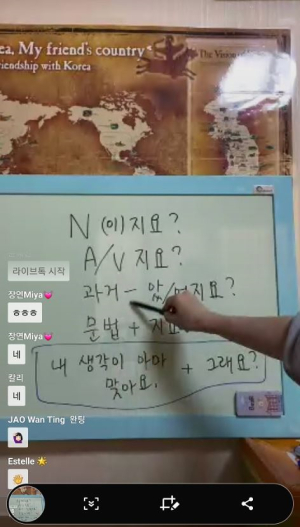 ea, My friend's country
riendship with Korea
The Vision of
N (이)지요?
A/V 지요?
과거 - 았/어지요?
문법 + 지요?
내 생각이 아마 맞아요. + 그래요?
라이브톡 시작
장연Miya💓
ㅎㅎㅎ
장연Miya💓
네
칼리
네
JAO Wan Ting 완팅
🙆🏻‍♀️
Estelle 🌟
👋